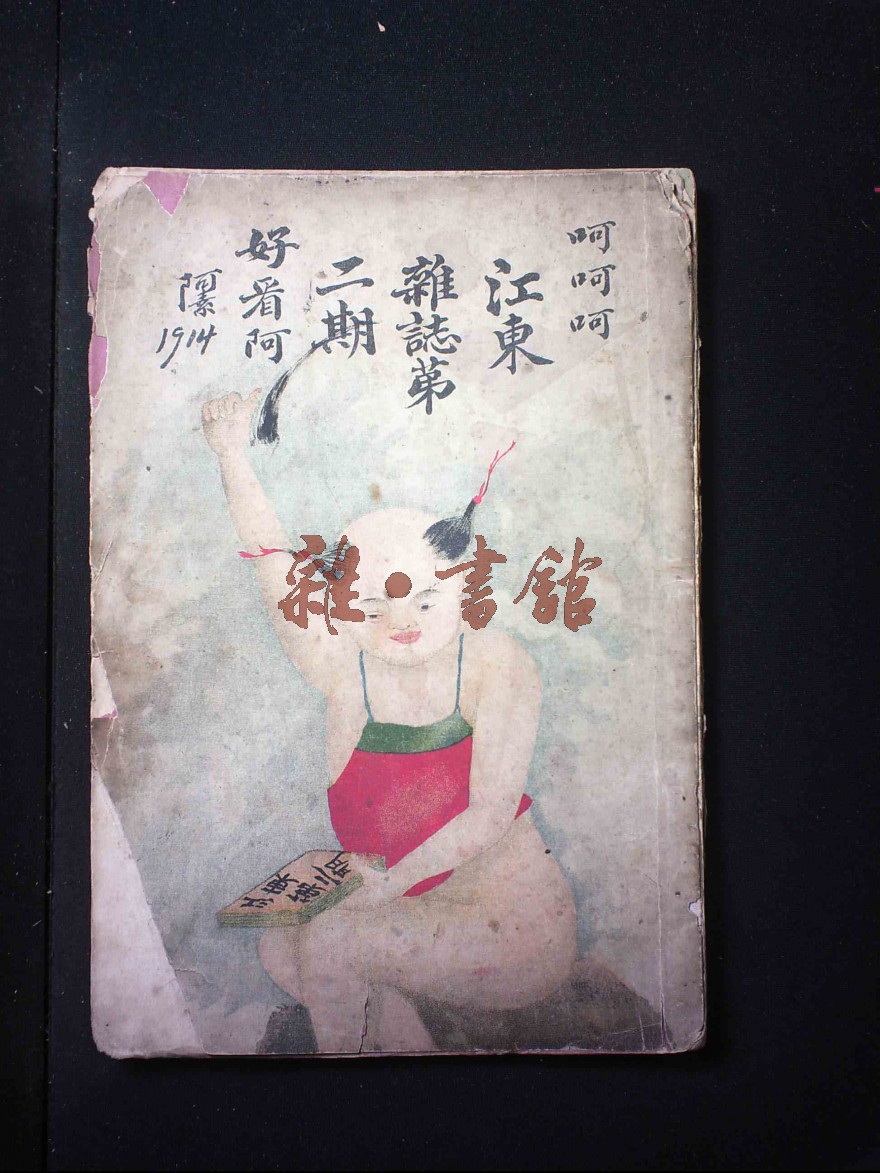 呵呵呵
江東
雜誌第
二期
好看阿
阿素
1914
雜·書館
江東
第二期